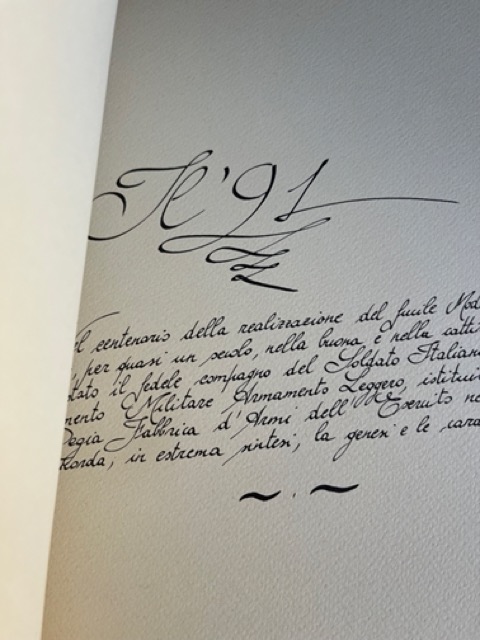 Il '91
el centenario della realizzazione del fucile Mod
per quasi un secolo, nella buona e nella catti
tato il fedele compagno del Soldato Italian
mento Militare Armamento Leggero, istitui
Regia Fabbrica d'Armi dell'Esercito ne
corda, in estrema sintesi, la genesi e le cara